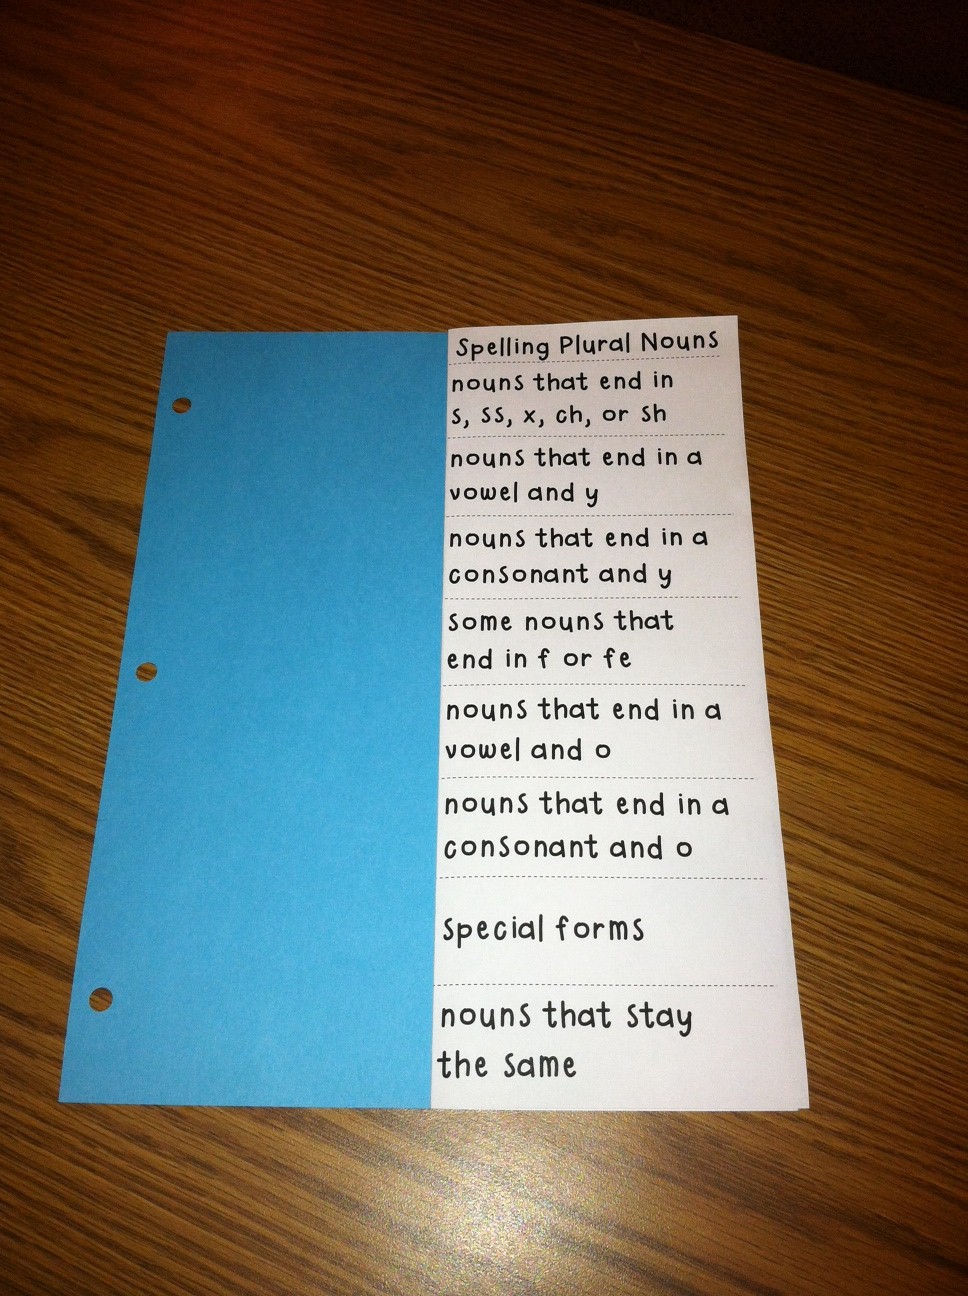 Spelling Plural Nouns
nouns that end in
s, ss, x, ch, or sh
nouns that end in a
vowel and y
nouns that end in a
consonant and y
some nouns that
end in f or fe
nouns that end in a
vowel and o
nouns that end in a
consonant and o
special forms
nouns that stay
the same